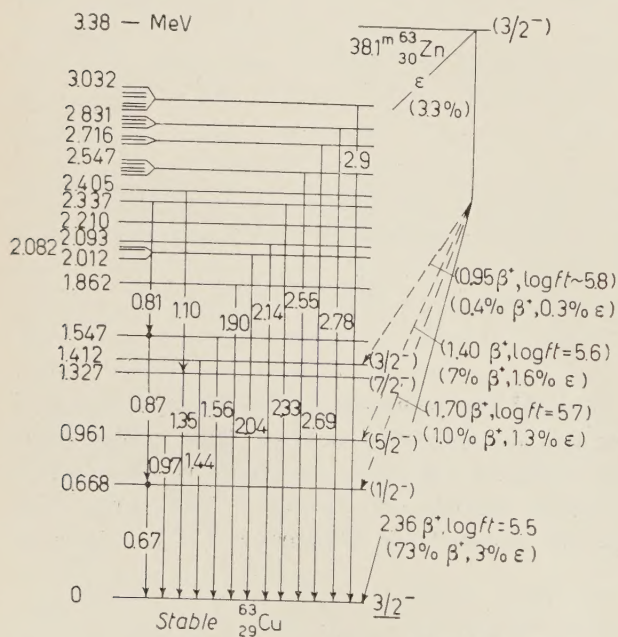 3.38 — MeV
(3/2⁻)
38.1ᵐ ⁶³₃₀Zn
ε
(3.3%)
3.032
2.831
2.716
2.547
2.405
2.337
2.210
2.093
2.082
2.012
1.862
1.547
1.412
1.327
0.961
0.668
0
2.9
0.81
1.10
1.90
2.14
2.55
2.78
0.87
1.35
1.56
2.04
2.33
2.69
0.97
1.44
0.67
(0.95 β⁺, log ft ~ 5.8)
(0.4% β⁺, 0.3% ε)
(1.40 β⁺, log ft = 5.6)
(7% β⁺, 1.6% ε)
(1.70 β⁺, log ft = 5.7)
(1.0% β⁺, 1.3% ε)
(3/2⁻)
(7/2⁻)
(5/2⁻)
(1/2⁻)
2.36 β⁺, log ft = 5.5
(73% β⁺, 3% ε)
3/2⁻
Stable ⁶³₂₉Cu